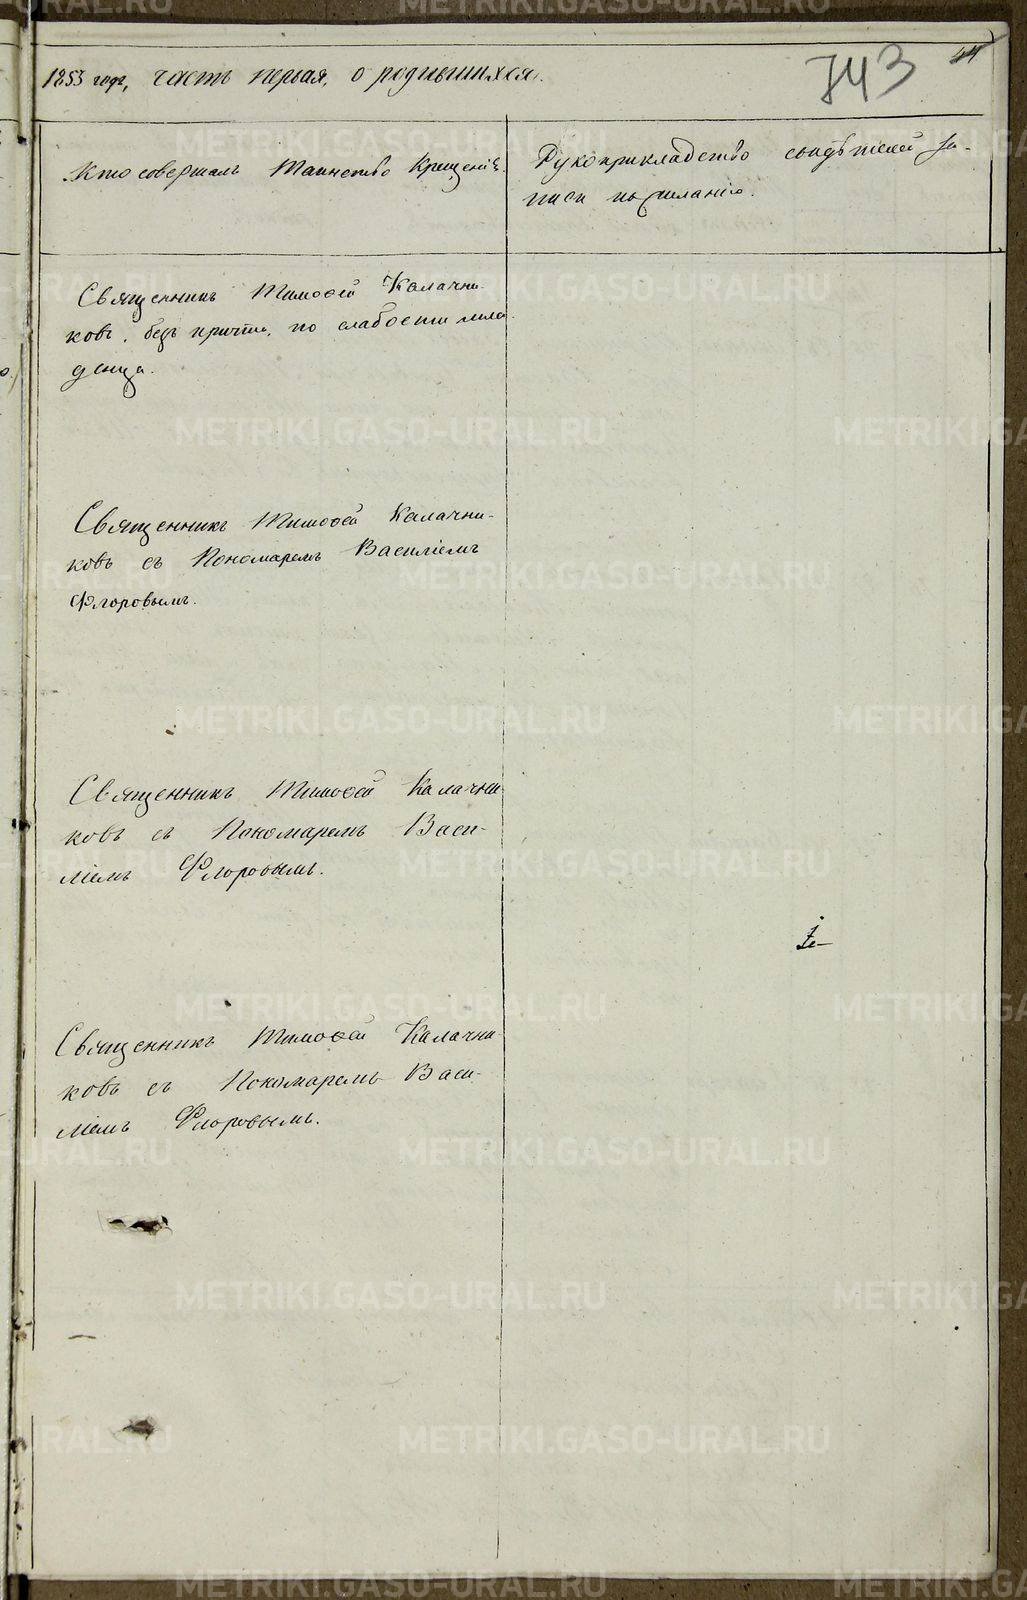 1853 года, часть первая, о родившихся.
743
44
Кто совершалъ Таинство Крещенiя.
Рукоприкладство свидѣтелей за-
писи по желанiю.
Священникъ Тимоѳей Калачни-
ковъ, безъ причта, по слабости мла
денца.
Священникъ Тимоѳей Калачни-
ковъ съ Пономаремъ Василiемъ
Флоровымъ.
Священникъ Тимоѳей Калачни
ковъ съ Пономаремъ Васи-
лiемъ Флоровымъ.
Священникъ Тимоѳей Калачни-
ковъ съ Пономаремъ Васи-
лiемъ Флоровымъ.
METRIKI.GASO-URAL.RU